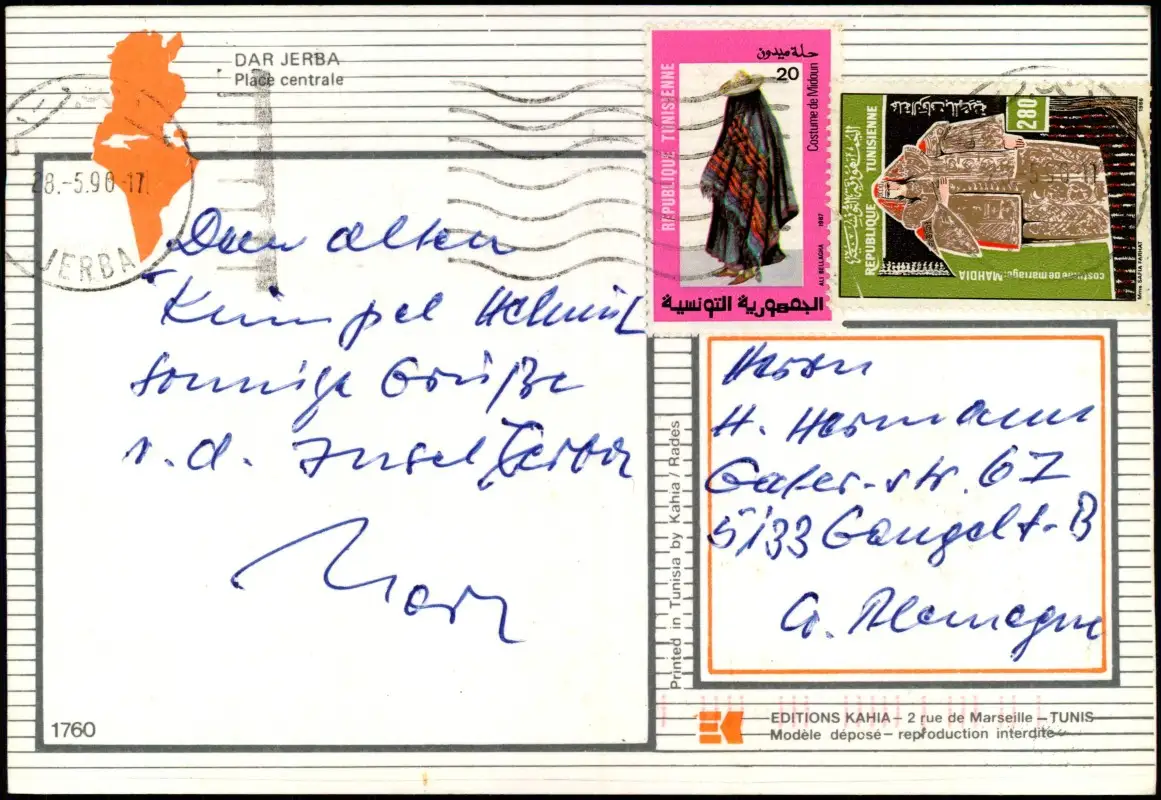 DAR JERBA
Place centrale
28.-5.90-17
JERBA
Dem alten
Kumpel Helmut
sonnige Grüße
v. d. Insel Jerba
1760
Printed in Tunisia by Kahia / Rades
REPUBLIQUE TUNISIENNE
حلة ميدون
20
Costume de Midoun
ALI BELLAGHA 1987
الجمهورية التونسية
الجمهورية التونسية
REPUBLIQUE TUNISIENNE
280
1986
costume de mariage: MAHDIA
Mme SAFIA FARHAT
Herrn
H. Hermann
str. 67
5133 Gangelt-B
Allemagne
EDITIONS KAHIA – 2 rue de Marseille – TUNIS
Modèle déposé – reproduction interdite